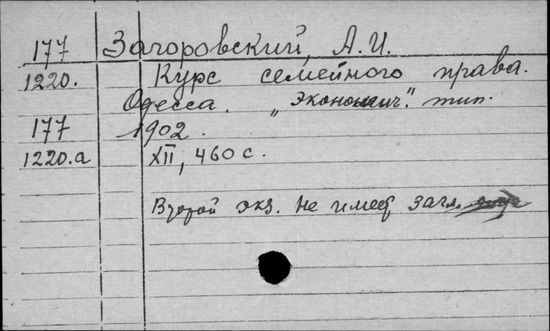 177 Загоровский, А.И.
1220. Курс семейного права.
Одесса. „Экономич." тип.
177 1902.
1220.а XII, 460 с.
Второй экз. не имеет загл.